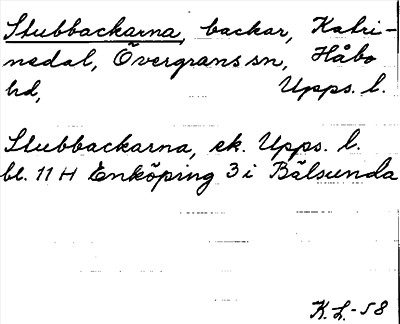 Stubbackarna, backar, Katri-
nedal, Övergrans sn, Håbo
hd, Upps. l.
Stubbackarna, ek. Upps. l.
bl. 11 H Enköping 3 i Bälsunda
K.L.-58